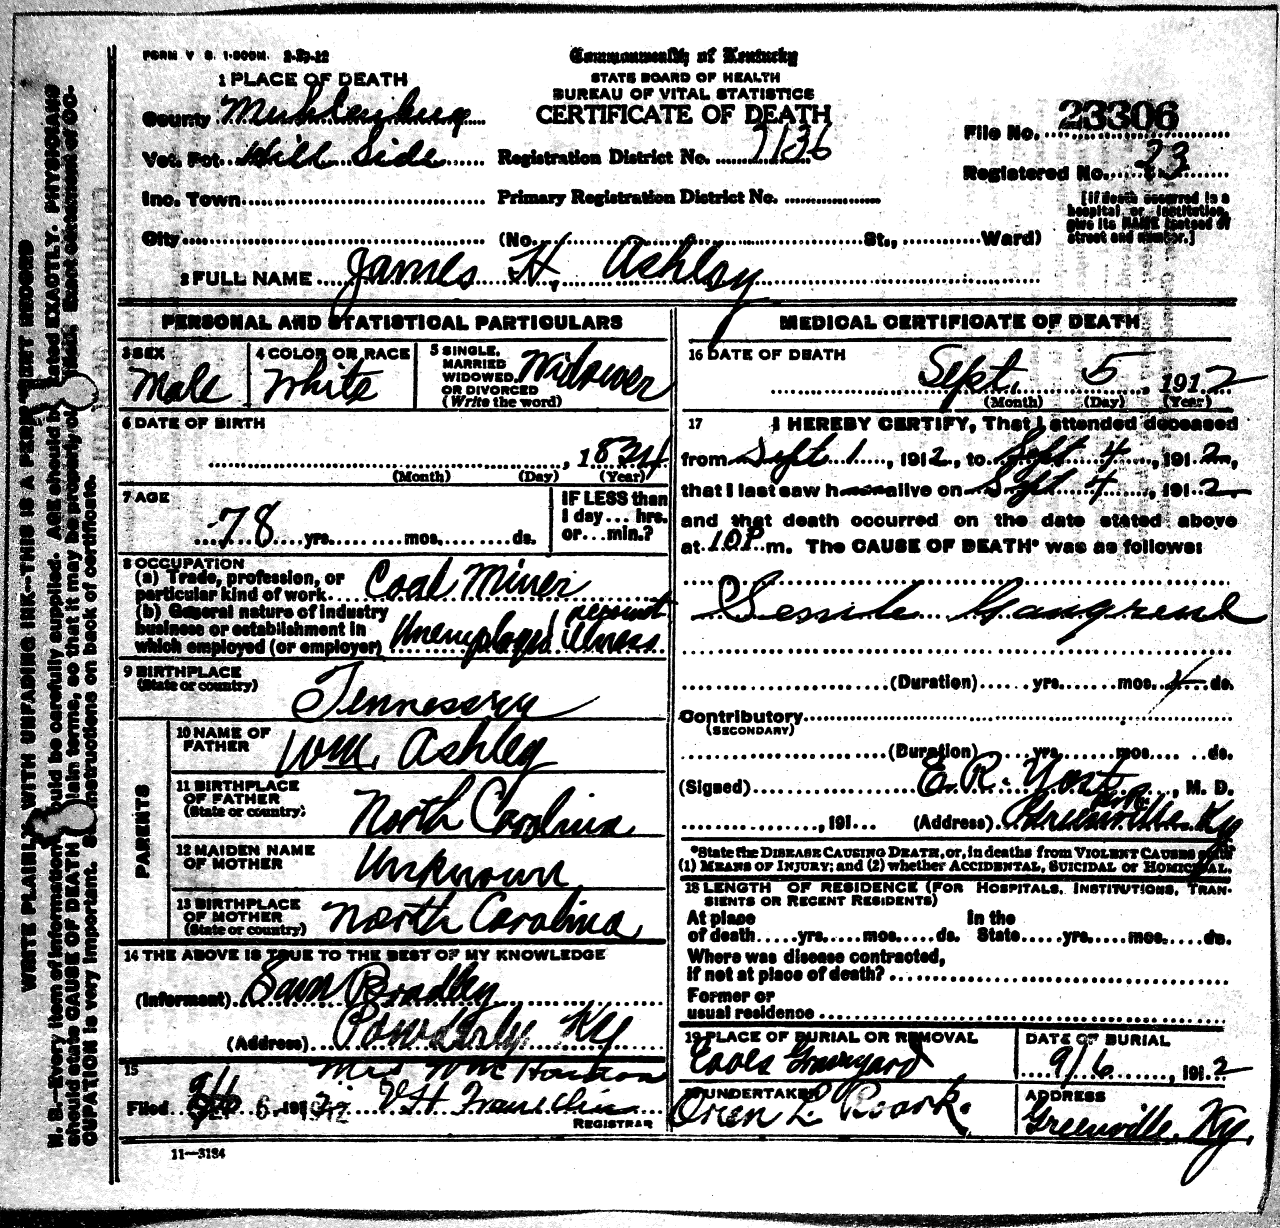 FORM V S. 1-500M. 2-29-12
Commonwealth of Kentucky
STATE BOARD OF HEALTH
BUREAU OF VITAL STATISTICS
CERTIFICATE OF DEATH
1 PLACE OF DEATH
County Muhlenburg
Vot. Pct. Hill Side
Inc. Town
City
Registration District No. 7136
Primary Registration District No.
(No. St., Ward)
File No. 23306
Registered No. 23
[If death occurred in a
hospital or institution,
give its NAME instead of
street and number.]
2 FULL NAME James H. Ashley
PERSONAL AND STATISTICAL PARTICULARS
3 SEX
Male
4 COLOR OR RACE
White
5 SINGLE,
MARRIED
WIDOWED,
OR DIVORCED
(Write the word)
Widower
6 DATE OF BIRTH
, 1834
(Month) (Day) (Year)
7 AGE
78 yrs. mos. ds.
IF LESS than
1 day... hrs.
or... min.?
8 OCCUPATION
(a) Trade, profession, or
particular kind of work Coal Miner
(b) General nature of industry
business or establishment in
which employed (or employer) Unemployed account illness
9 BIRTHPLACE
(State or country)
Tennessey
PARENTS
10 NAME OF
FATHER
Wm. Ashley
11 BIRTHPLACE
OF FATHER
(State or country)
North Carolina
12 MAIDEN NAME
OF MOTHER
Unknown
13 BIRTHPLACE
OF MOTHER
(State or country)
North Carolina
14 THE ABOVE IS TRUE TO THE BEST OF MY KNOWLEDGE
(Informant) Sam Bradley
(Address) Powderly Ky
15
Filed 6, 191
Mrs
VH
REGISTRAR
11—3184
MEDICAL CERTIFICATE OF DEATH
16 DATE OF DEATH
Sept. 5, 1912
(Month) (Day) (Year)
17 I HEREBY CERTIFY, That I attended deceased
from Sept 1, 1912, to Sept 4, 1912,
that I last saw h alive on Sept 4, 1912
and that death occurred on the date stated above
at 10P m. The CAUSE OF DEATH* was as follows:
Gangrene
(Duration) yrs. mos. 4 ds.
Contributory
(SECONDARY)
(Duration) yrs. mos. ds.
(Signed) E. R. , M. D.
, 191... (Address) Greenville Ky
*State the DISEASE CAUSING DEATH, or, in deaths from VIOLENT CAUSES state
(1) MEANS OF INJURY; and (2) whether ACCIDENTAL, SUICIDAL or HOMICIDAL.
18 LENGTH OF RESIDENCE (FOR HOSPITALS, INSTITUTIONS, TRAN-
SIENTS OR RECENT RESIDENTS)
At place In the
of death yrs. mos. ds. State yrs. mos. ds.
Where was disease contracted,
if not at place of death?
Former or
usual residence
19 PLACE OF BURIAL OR REMOVAL
Eaves Graveyard
DATE OF BURIAL
9/6, 1912
20 UNDERTAKER
Oren L. Roark.
ADDRESS
Greenville, Ky.
WRITE PLAINLY WITH UNFADING INK—THIS IS A PERMANENT RECORD
N. B.—Every item of information should be carefully supplied. AGE should be stated EXACTLY. PHYSICIANS
should state CAUSE OF DEATH in plain terms, so that it may be properly classified. Exact statement of OC-
CUPATION is very important. See instructions on back of certificate.